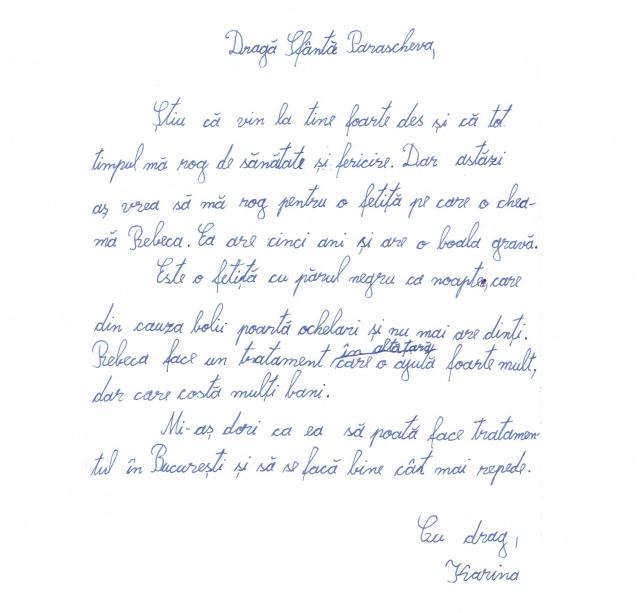 Dragă Sfântă Parascheva,
Știu că vin la tine foarte des și că tot
timpul mă rog de sănătate și fericire. Dar astăzi
aș vrea să mă rog pentru o fetiță pe care o chea-
mă Rebeca. Ea are cinci ani și are o boala gravă.
Este o fetiță cu părul negru ca noaptea, care
din cauza bolii poartă ochelari și nu mai are dinți.
în altă țară
Rebeca face un tratament care o ajută foarte mult,
dar care costă mulți bani.
Mi-aș dori ca ea să poată face tratamen
tul în București și să se facă bine cât mai repede.
Cu drag,
Karina